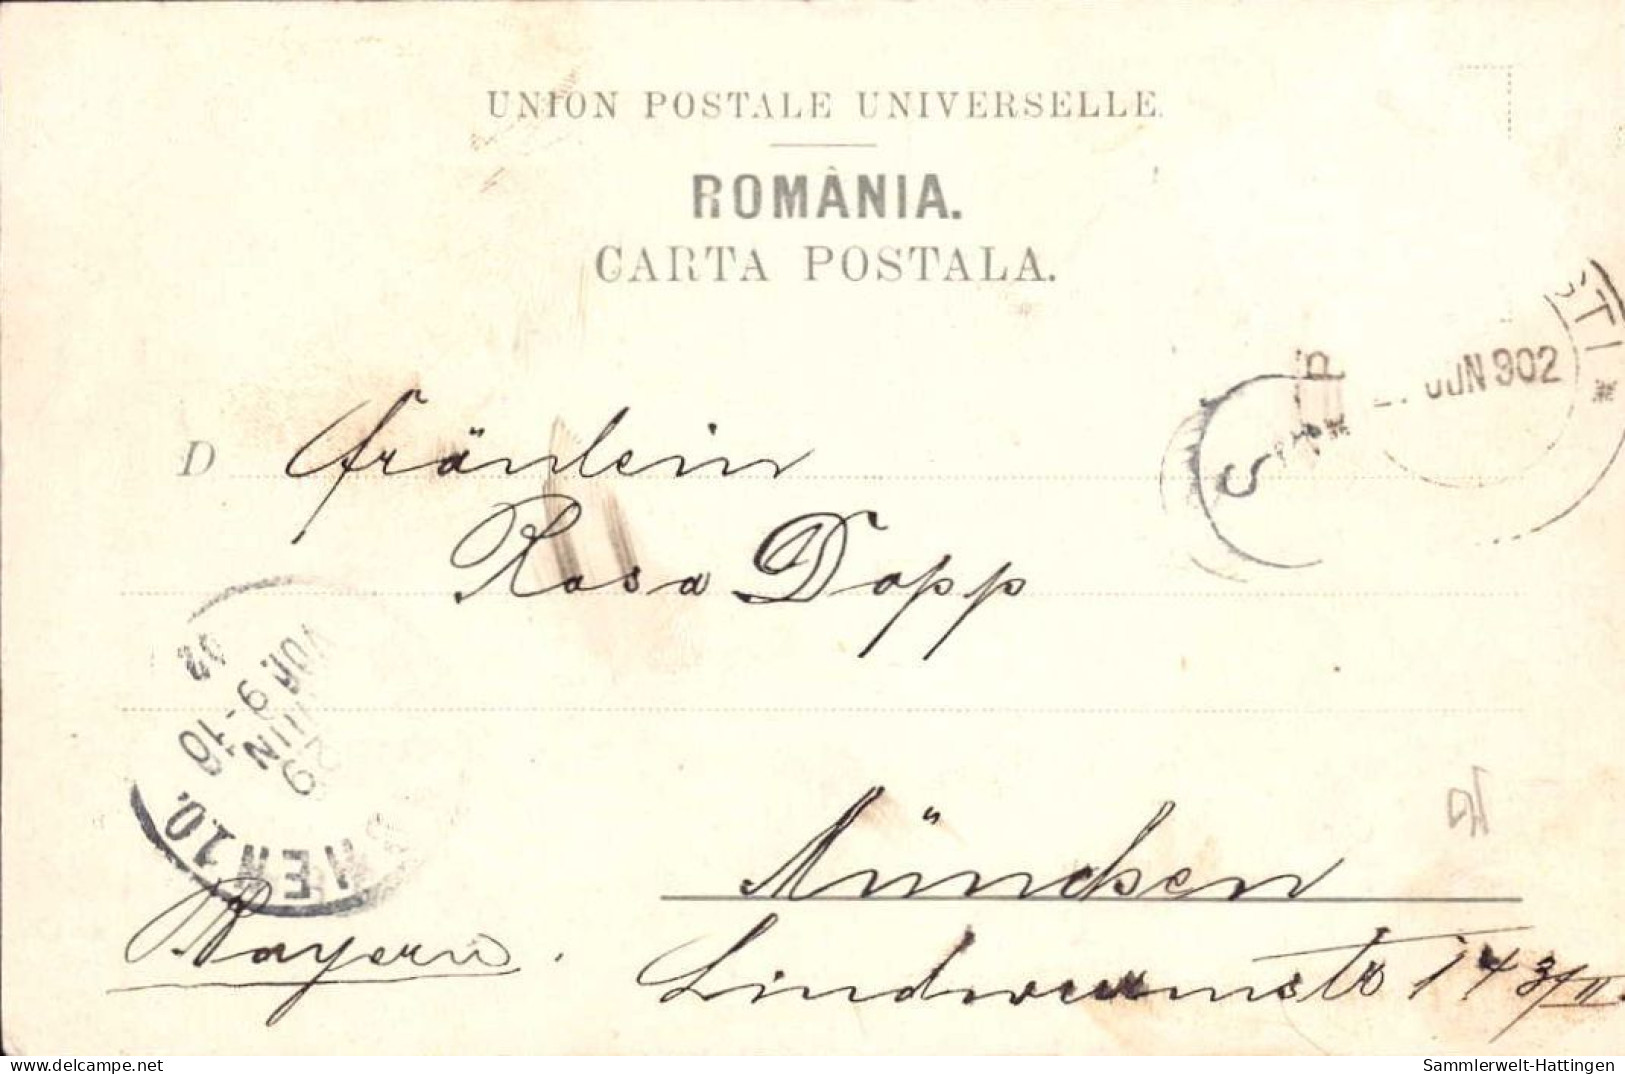 UNION POSTALE UNIVERSELLE.
ROMÂNIA.
CARTA POSTALA.
STI
JUN 902
D Fräulein
Rosa Dopp
02
VOR.
9-10
29
JUN
München
Bayern.
Lindwurmstr 143/II.
www.delcampe.net
Sammlerwelt-Hattingen